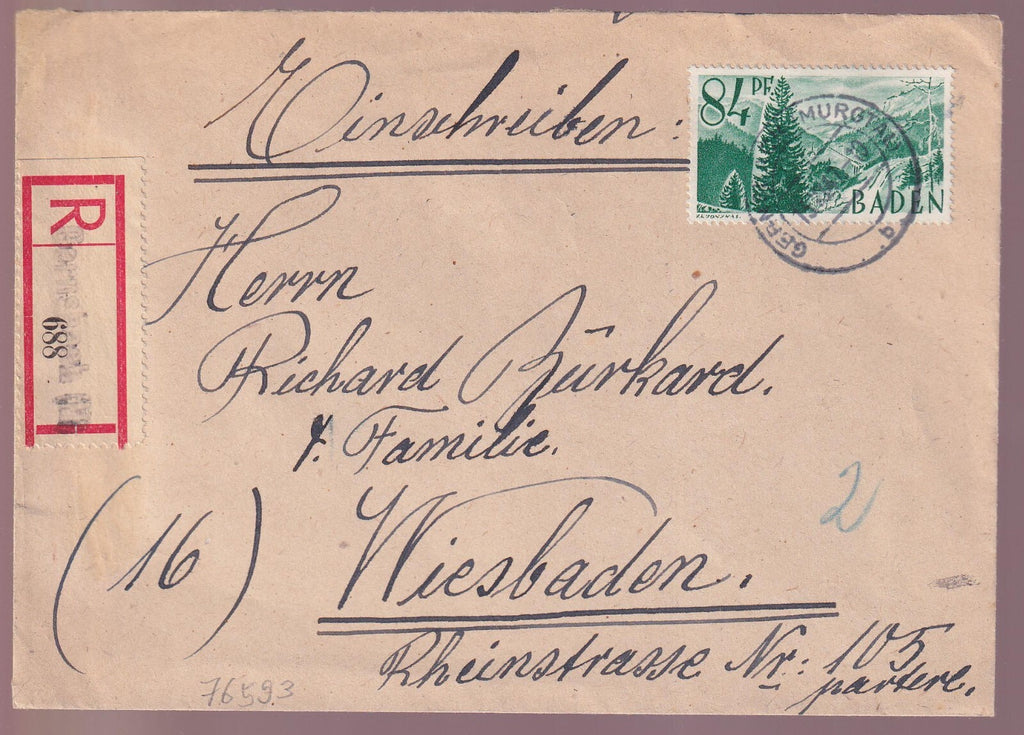 Einschreiben:
84 PF
BADEN
MURGTAL
R
889
Herrn
Richard Bürkard.
Familie.
(16) Wiesbaden.
Rheinstrasse Nr: 105
partere.
2
76593